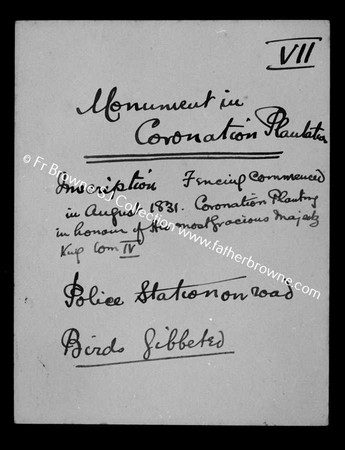 VII
Monument in
Coronation Plantation
Inscription Fencing Commenced
in August 1831. Coronation Planting
in honour of His most Gracious Majesty
King Wm IV
Police Station on road
Birds Gibbeted
© Fr Browne SJ Collection www.fatherbrowne.com